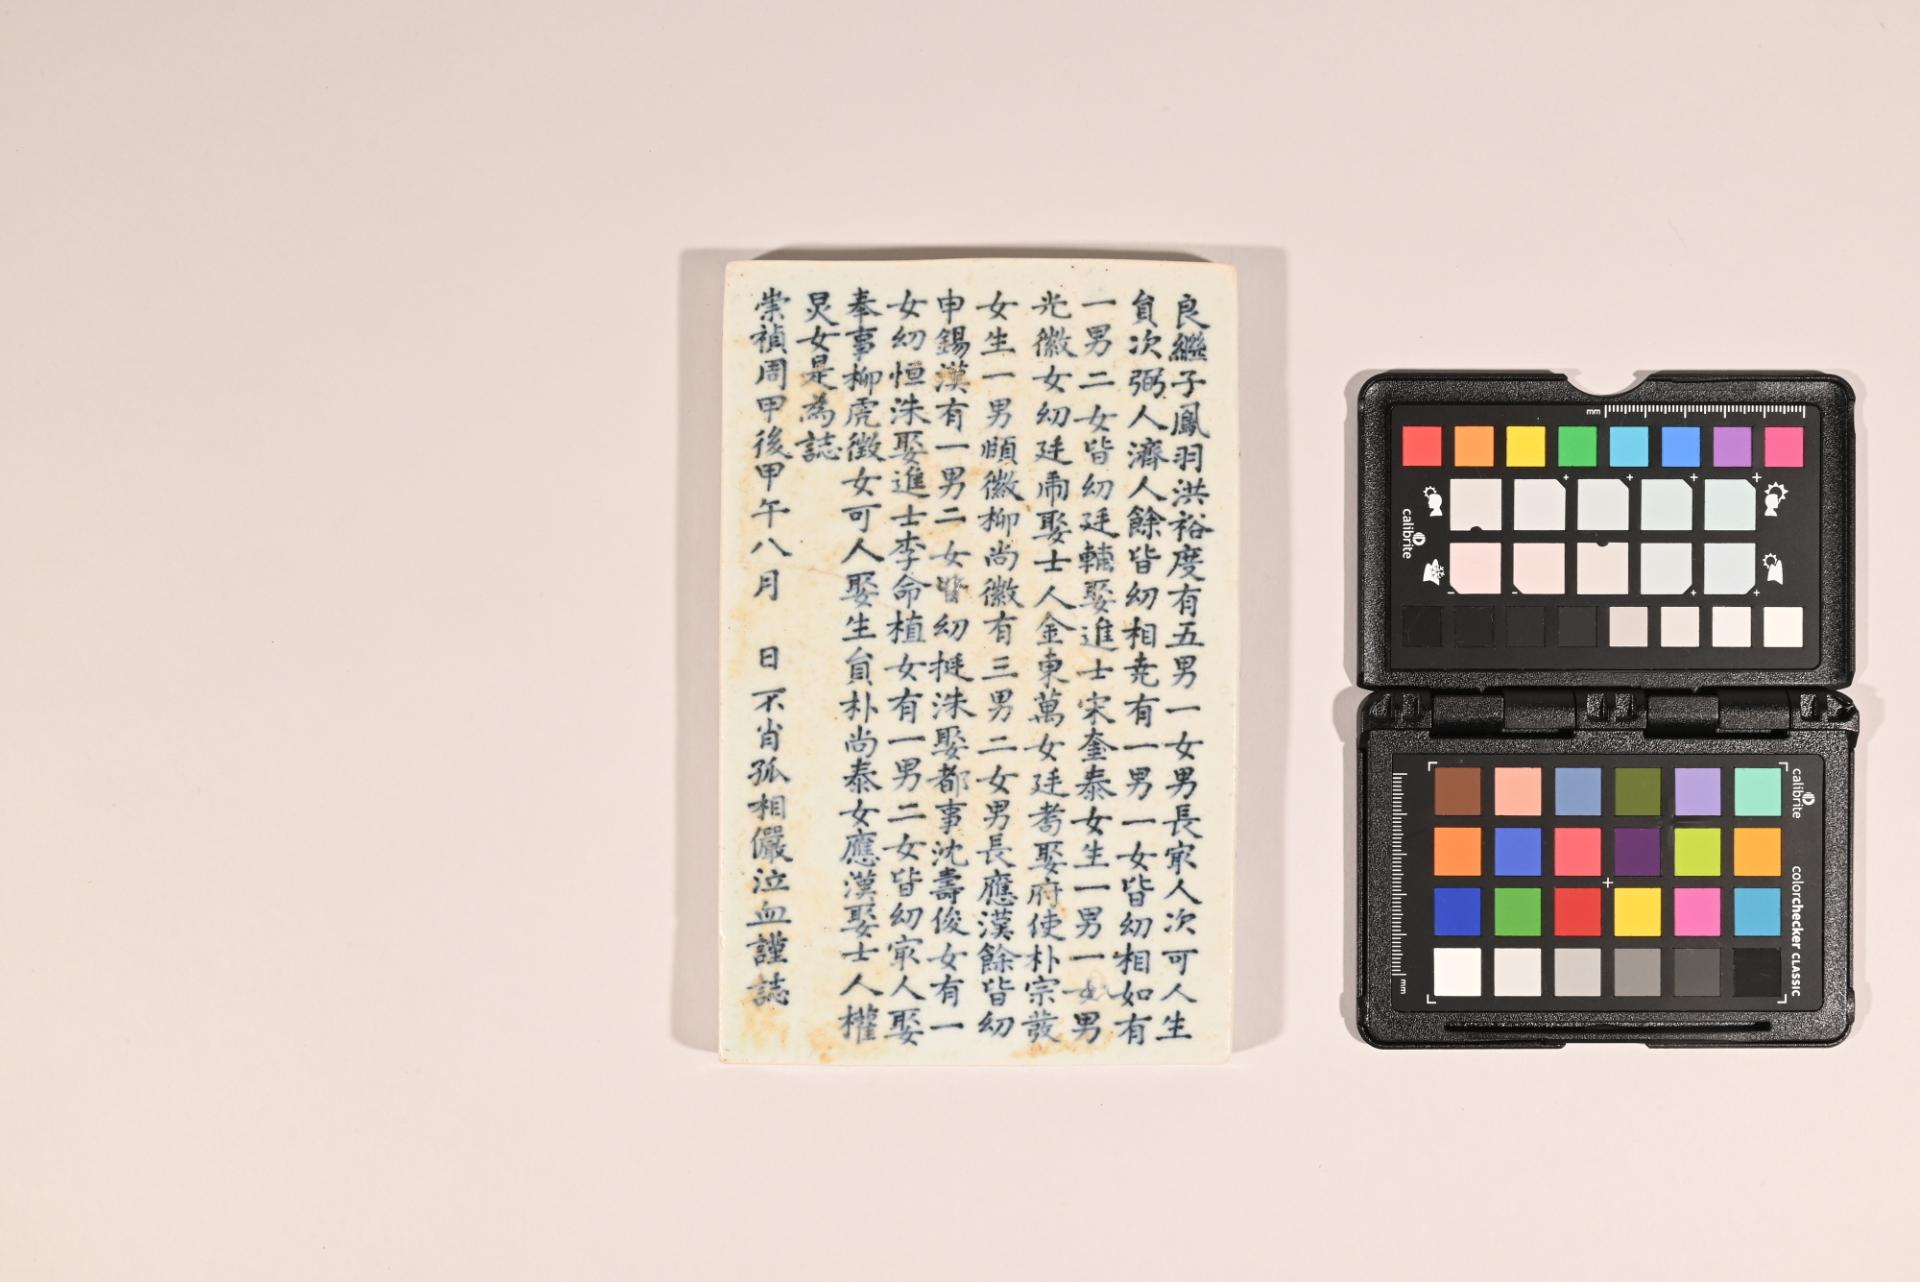 良繼子鳳羽洪裕度有五男一女男長㝡人次可人生
負次弼人濟人餘皆幼相堯有一男一女皆幼相如有
一男二女皆幼廷輔娶進士宋奎泰女生一男一女男
光徽女幼廷鼐娶士人金東萬女廷耈娶府使朴宗發
女生一男頤徽柳尚徽有三男二女男長應漢餘皆幼
申錫漢有一男二女皆幼挺洙娶都事沈壽俊女有一
女幼恒洙娶進士李命植女有一男二女皆幼㝡人娶
奉事柳虎徵女可人娶生負朴尚泰女應漢娶士人權
炅女是為誌
崇禎周甲後甲午八月 日不肖孤相儼泣血謹誌
mm
calibrite
calibrite
colorchecker CLASSIC
mm